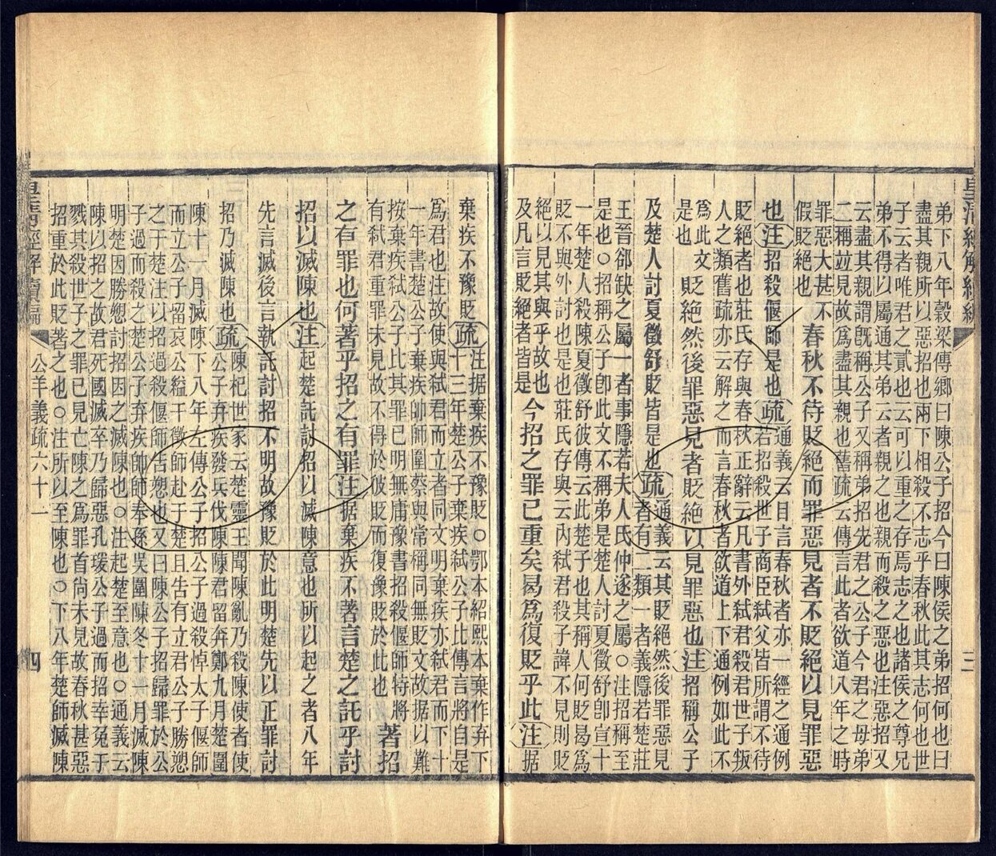 皇清經解續編 三
弟下八年穀梁傳鄉曰陳公子招今曰陳侯之弟招何也曰
盡其親所以惡招也兩下相殺不志乎春秋此其志何也世
子云者唯君之貳也云可以重之存焉志之也諸侯之尊兄
弟不得以屬通其弟云者親之也親而殺之惡也注惡招又
云盡其親謂既稱公子又稱弟招先君之公子今君之母弟
二稱竝見故爲盡其親也舊疏云傳言此者欲道八年之時
罪惡大甚不
假貶絕也
春秋不待貶絕而罪惡見者不貶絕以見罪惡
也注招殺偃師是也疏
通義云目言春秋者亦一經之通例
若招殺世子商臣弑父皆所謂不待
貶絕者也莊氏存與春秋正辭云凡書外弑君殺君世子叛
人之類舊疏亦云解之而言春秋者欲道上下通例如此不
爲此文
是也
貶絕然後罪惡見者貶絕以見罪惡也注招稱公子
及楚人討夏徵舒貶皆是也疏
通義云其貶絕然後罪惡見
者有二類一者義隱若楚莊
王晉郤缺之屬一者事隱若夫人氏仲遂之屬○注招稱至
是也○招稱公子卽此文不稱弟是楚人討夏徵舒卽宣十
一年楚人殺陳夏徵舒彼傳云此楚子也其稱人何貶曷爲
貶不與外討也是也莊氏存與云內弑君殺子諱不見則貶
絕以見其與乎故也
及凡言貶絕者皆是
今招之罪已重矣曷爲復貶乎此注据
棄疾不豫貶疏
注据棄疾不豫貶○鄂本紹熙本棄作弃下
十三年楚公子棄疾弑公子比傳言將自是
爲君也注故使與弑君而立者同文明棄疾亦弑君而下十
一年書楚公子棄疾帥師圍蔡與常稱同無貶文故据以難
按棄疾弑公子比其罪已明無庸豫書招殺偃師特將
有弑君重罪未見故不得於彼貶而復豫貶於此也
著招
之有罪也何著乎招之有罪注据棄疾不著言楚之託乎討
招以滅陳也注起楚託討招以滅陳意也所以起之者八年
先言滅後言執託討招不明故豫貶於此明楚先以正罪討
招乃滅陳也疏
陳杞世家云楚靈王聞陳亂乃殺陳使者使
公子弃疾發兵伐陳陳君留奔鄭九月楚圍
陳十一月滅陳下八年左傳公子招公子過殺悼太子偃師
而立公子留哀公縊干徵師赴于楚且告有立君公子勝愬
之于楚注以招過殺偃師告愬也又曰陳公子招歸罪於公
子過而殺之楚公子弃疾帥師奉孫吳圍陳冬十一月滅陳
明楚因勝愬討招因之滅陳也○注起楚至意也○通義云
陳以招之故君死國滅卒乃歸惡孔瑗公子過而招幸免于
戮其殺世子之罪已見亡陳之爲罪首尚未見故春秋甚惡
招重於此貶著之也○注所以至陳也○下八年楚師滅陳
皇清經解續編 公羊義疏六十一 四